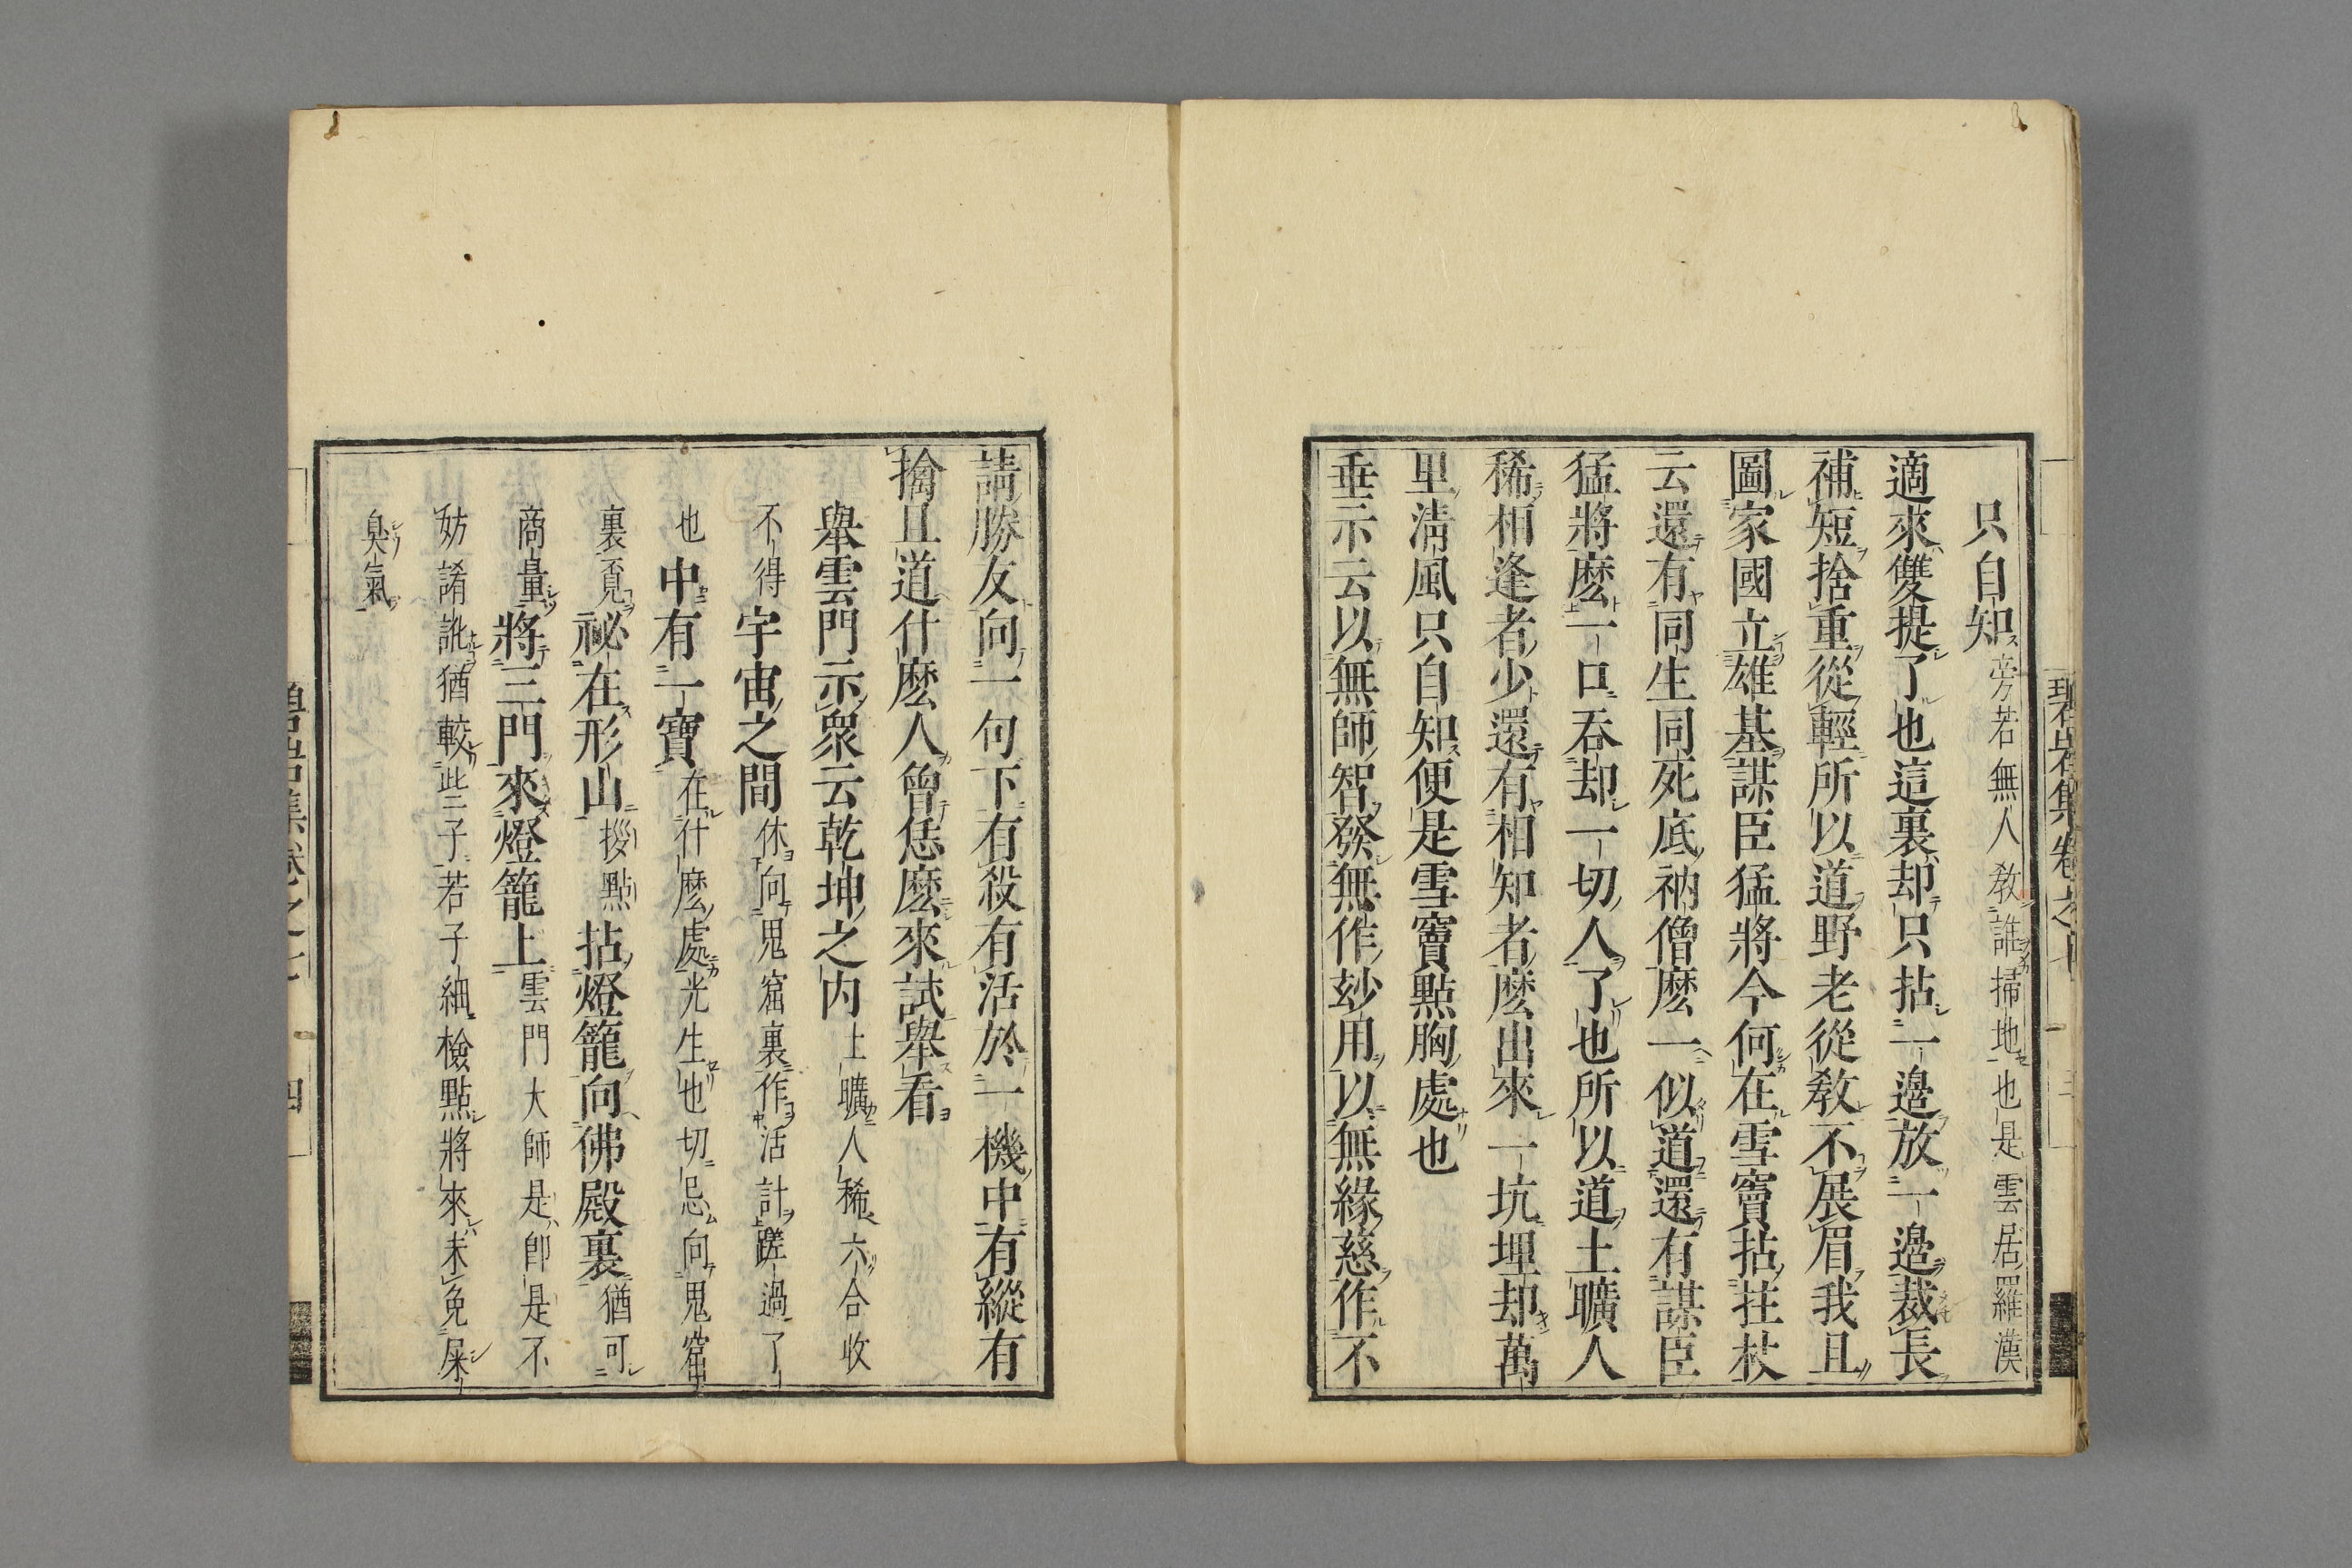 只自知旁若無人敎誰掃地也是雲居羅漢
適來雙提了也這裏却只拈一邊放一邊裁長
補短捨重從輕所以道野老從敎不展眉我且
圖家國立雄基謀臣猛將今何在雪竇拈拄杖
云還有同生同死底衲僧麽一似道還有謀臣
猛將麽一口吞却一切人了也所以道土曠人
稀相逢者少還有相知者麽出來一坑埋却萬
里淸風只自知便是雪竇點胸處也
垂示云以無師智發無作玅用以無緣慈作不
請勝友向一句下有殺有活於一機中有縱有
擒且道什麽人曾恁麽來試舉看
舉雲門示衆云乾坤之内土曠人稀六合收
不得宇宙之間休向鬼窟裏作活計蹉過了
也中有一寶在什麽處光生也切忌向鬼窟
裏覔祕在形山拶點拈燈籠向佛殿裏猶可
商量將三門來燈籠上雲門大師是卽是不
妨誵訛猶較些子若子細檢點將來未免屎
臭氣
碧岩集卷之七 四